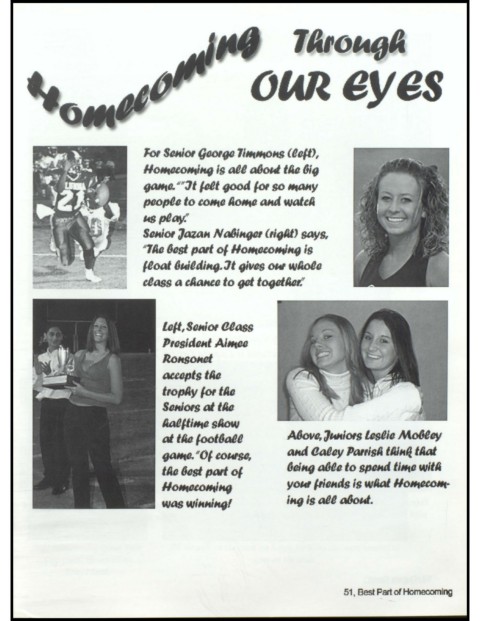 Homecoming Through
OUR EYES
For Senior George Timmons (left),
Homecoming is all about the big
game. ""It felt good for so many
people to come home and watch
us play."
Senior Jazan Nabinger (right) says,
"The best part of Homecoming is
float building. It gives our whole
class a chance to get together."
21
Left, Senior Class
President Aimee
Ronsonet
accepts the
trophy for the
Seniors at the
halftime show
at the football
game. "Of course,
the best part of
Homecoming
was winning!
Above, Juniors Leslie Mobley
and Caley Parrish think that
being able to spend time with
your friends is what Homecom-
ing is all about.
51, Best Part of Homecoming